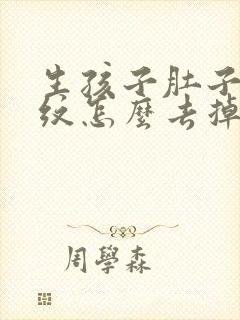 生孩子肚子
纹怎麼去掉
周學森